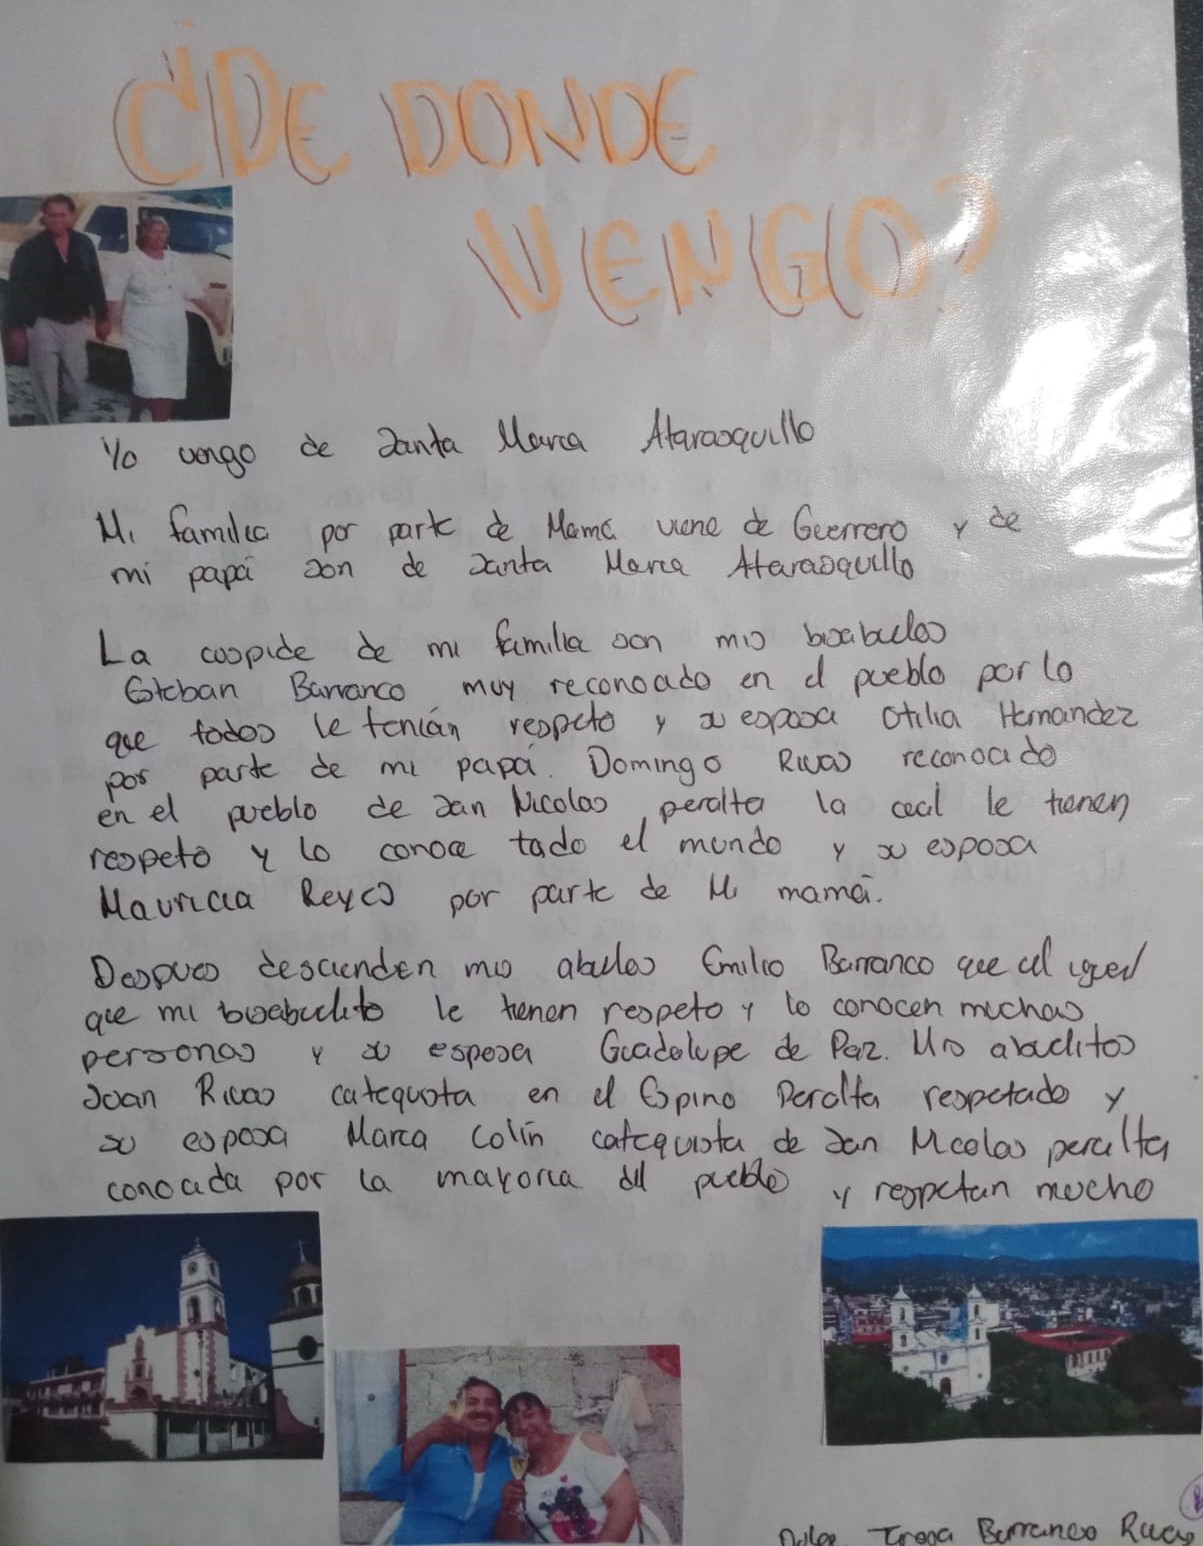 ¿DE DONDE
VENGO?
Yo vengo de Santa Maria Atarasquillo
Mi familia por parte de Mamá viene de Guerrero y de
mi papá son de Santa Maria Atarasquillo
La cuspide de mi familia son mis bisabuelos
Esteban Barranco muy reconocido en el pueblo por lo
que todos le tenián respeto y su esposa Otilia Hernandez
por parte de mi papá. Domingo Rivas reconocido
en el pueblo de San Nicolas peralta la cual le tienen
respeto y lo conoce todo el mundo y su esposa
Mauricia Reyes por parte de Mi mamá.
Despues descienden mis abuelos Emilio Barranco que al igual
que mi bisabuelito le tienen respeto y lo conocen muchas
personas y su esposa Guadalupe de Paz. Mis abuelitos
Juan Rivas catequista en el Espino Peralta respetado y
su esposa Maria Colín catequista de San Nicolas peralta
conocida por la mayoria del pueblo y respetan mucho
Barranco Rivas